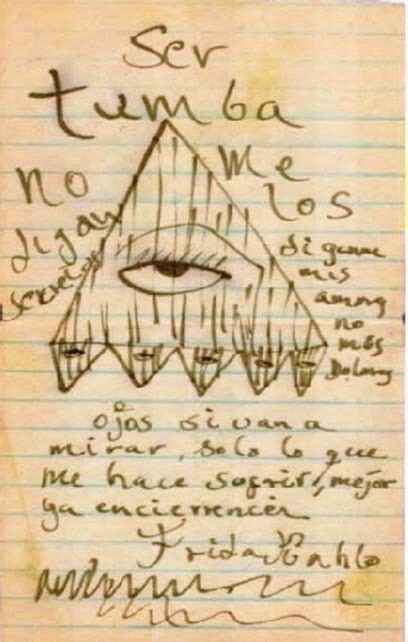 Ser
tumba
no me
digan los
secretos
digame
mis
amung
no
más
Dolores
ojos si van a
mirar, solo lo que
me hace sofrir, mejor
ya encierrencen
Frida Kahlo